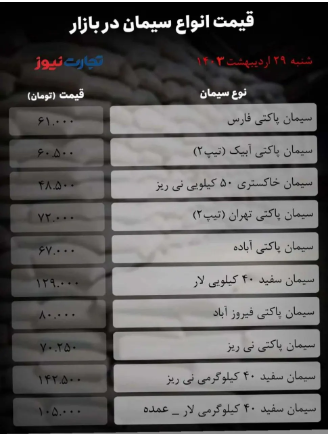 قیمت انواع سیمان در بازار
شنبه ۲۹ اردیبهشت ۱۴۰۳
تجارت‌نیوز
نوع سیمان قیمت (تومان)
سیمان پاکتی فارس ۶۱.۰۰۰
سیمان پاکتی آبیک (تیپ۲) ۶۰.۵۰۰
سیمان خاکستری ۵۰ کیلویی نی ریز ۴۸.۵۰۰
سیمان پاکتی تهران (تیپ۲) ۷۲.۰۰۰
سیمان پاکتی آباده ۶۷.۰۰۰
سیمان سفید ۴۰ کیلویی لار ۱۲۹.۰۰۰
سیمان پاکتی فیروز آباد ۸۰.۰۰۰
سیمان پاکتی نی ریز ۷۰.۲۵۰
سیمان سفید ۴۰ کیلوگرمی نی ریز ۱۴۲.۵۰۰
سیمان سفید ۴۰ کیلوگرمی لار _ عمده ۱۰۵.۰۰۰